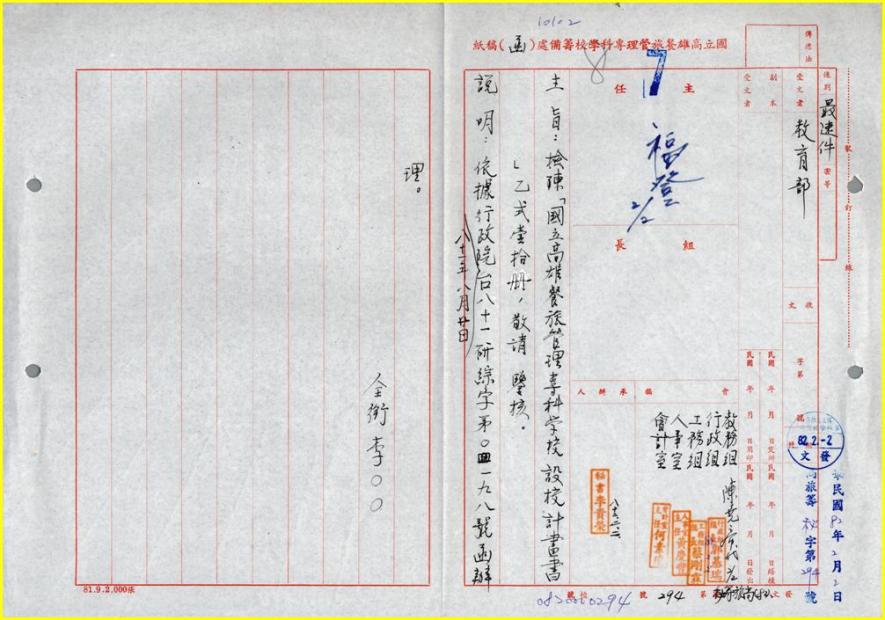 10102
國立高雄餐旅管理專科學校籌備處（函）稿紙
8
傳遞法
速別
最速件
密等
受文者
教育部
副本
受文者
裝
訂
線
收文
字第
號
主任
17
福登
2/2
組長
主旨：檢陳「國立高雄餐旅管理專科學校設校計畫書
」乙式壹拾冊，敬請 鑒核。
說明：依據行政院台八十一研綜字第0四一九八號函辦
八十一年八月廿日
理。
全銜 李○○
會稿承辦人
教務組
行政組
工務組
人事室
會計室
秘書李貴榮
八十二.二.二
民國 年 月 日
民國 年 月 日
82.2.-2
發文
民國82年2月2日
高旅籌秘字第294號
發文
第294號
號位
0820000294
81.9.2,000張